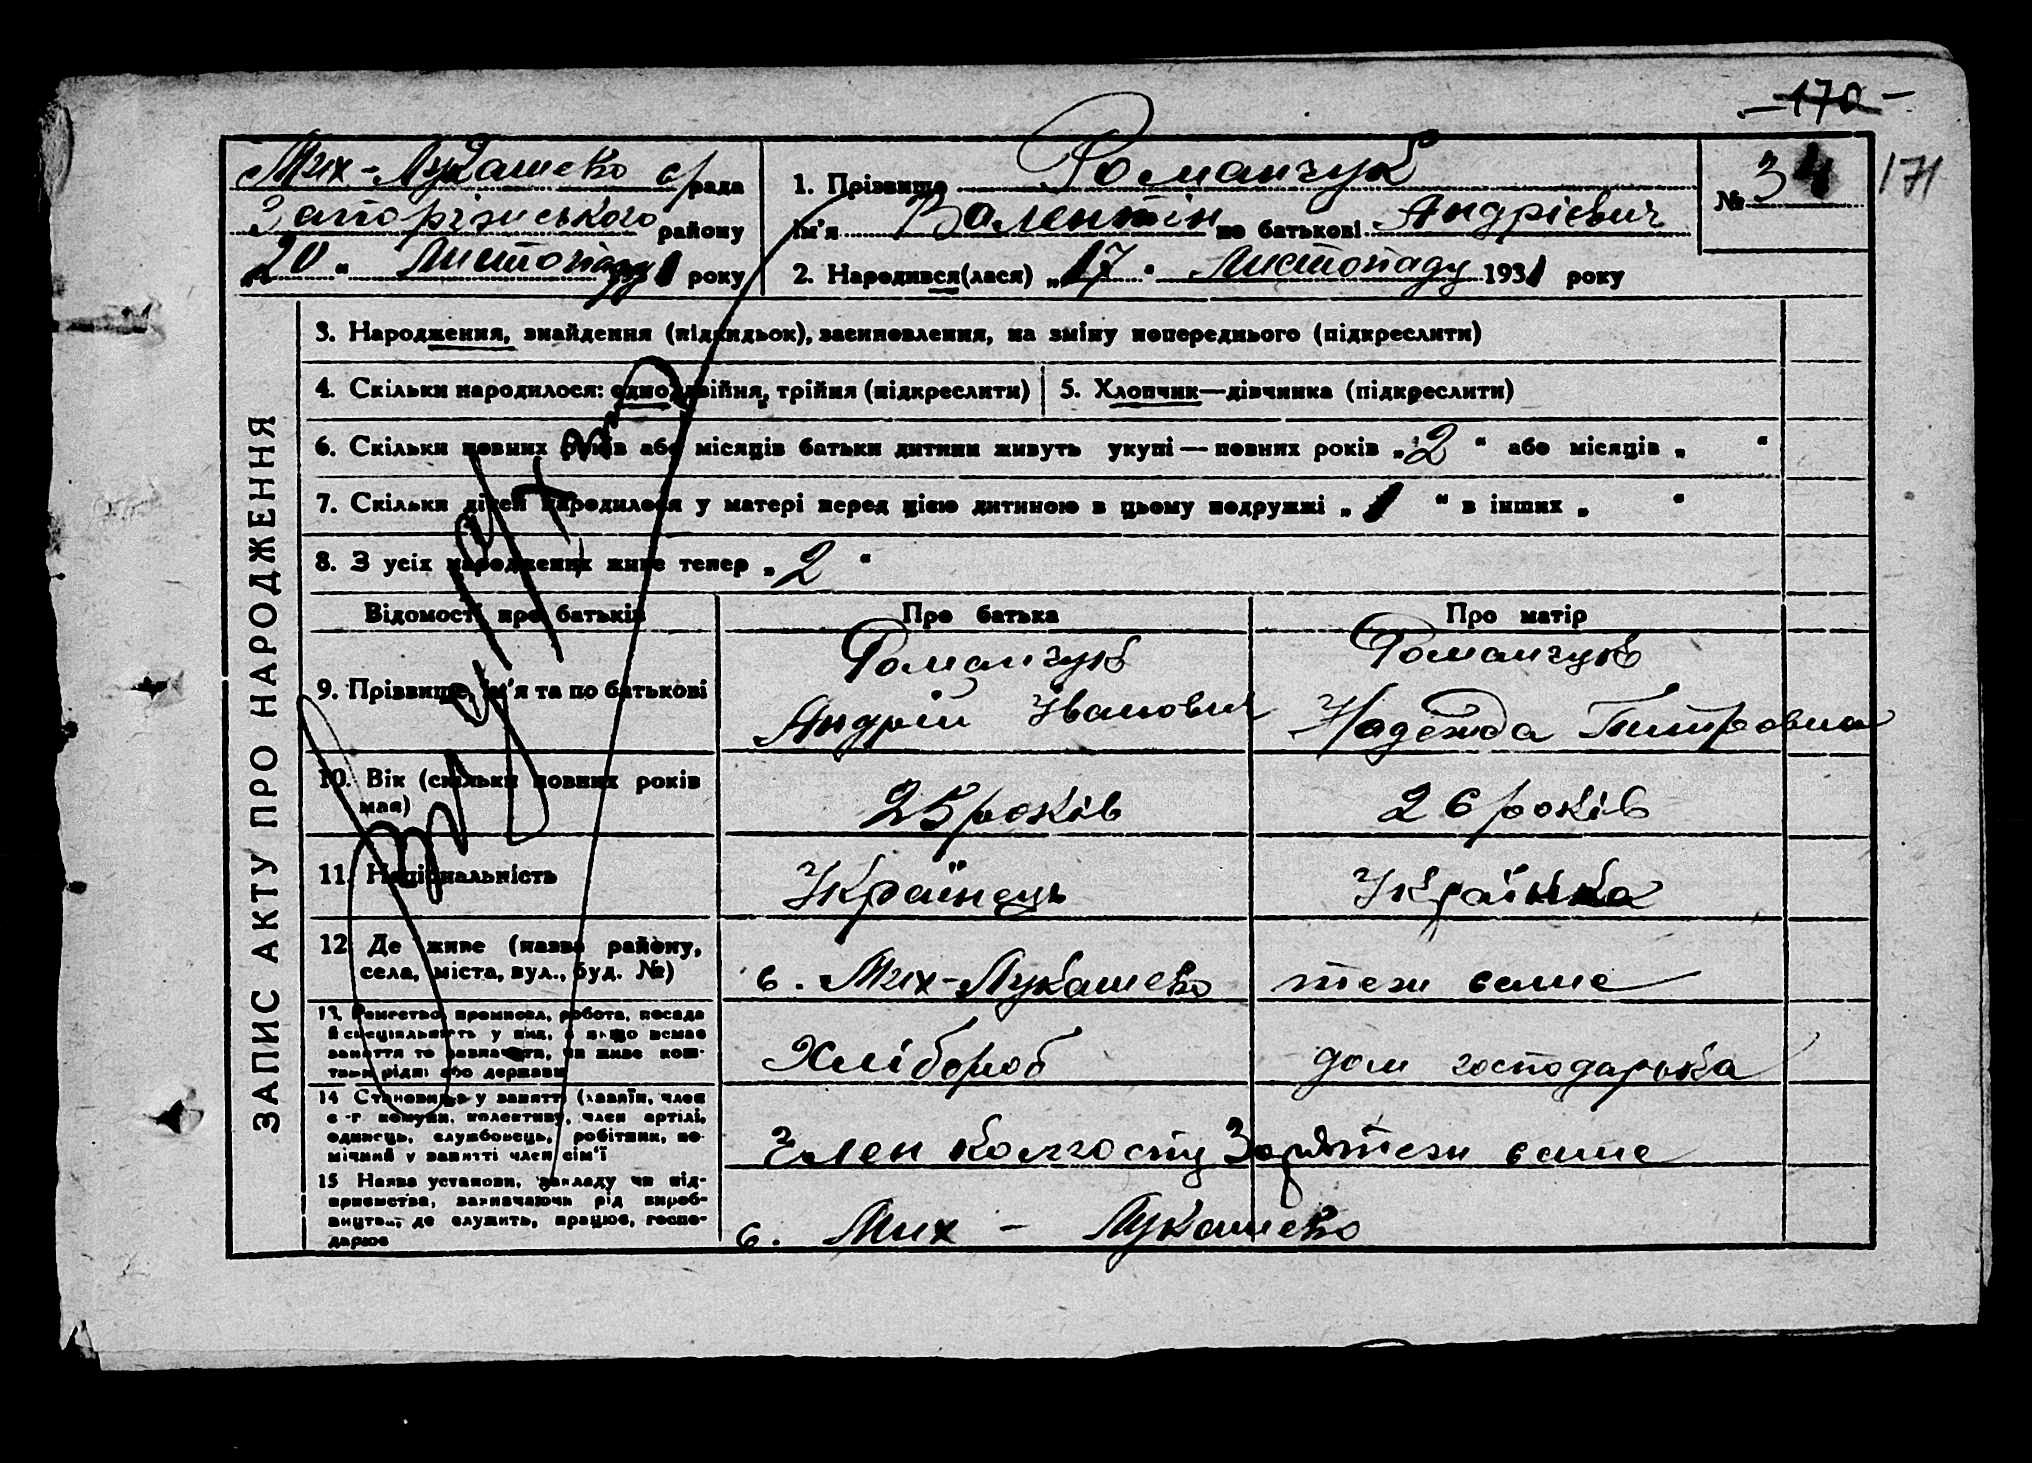 170
171
Мих-Лукашево с/рада
Запоріжського району
20 " Листопаду 1 року
1. Прізвище Романчук
Ім'я Валентін по батькові Андрієвич
2. Народився(лася) „17" Листопаду 1931 року
№ 34
ЗАПИС АКТУ ПРО НАРОДЖЕННЯ
3. Народження, знайдення (підкидьок), засиновлення, на зміну попереднього (підкреслити)
4. Скільки народилося: одно, двійня, трійня (підкреслити)
5. Хлопчик—дівчинка (підкреслити)
6. Скільки повних років або місяців батьки дитини живуть укупі — повних років „2" або місяців „ "
7. Скільки дітей народилося у матері перед цією дитиною в цьому подружжі „1" в інших „ "
8. З усіх народжених живе тепер „2"
Відомості про батьків
Про батька
Про матір
9. Прізвище, ім'я та по батькові
Романчук
Андрій Іванович
Романчук
Надежда Питровна
10. Вік (скільки повних років
має)
25 років
26 років
11. Національність
Українець
Українка
12. Де живе (назва району,
села, міста, вул., буд. №)
с. Мих-Лукашево
теж саме
13. Ремество, промисел, робота, посада
й спеціяльність у них, а якщо немає
заняття то зазначити, чи живе кош-
тами рідні або держави
Хлібороб
дом господарька
14 Становище у занятті (хазяїн, член
с.-г комуни, колективу, член артілі,
одинець, службовець, робітник, по-
мічний у занятті член сім'ї
Член колгоспу Зоря
теж саме
15 Назва установи, закладу чи під-
приємства, зазначаючи рід вироб-
ництва, де служить, працює, госпо-
дарює
с. Мих - Лукашево